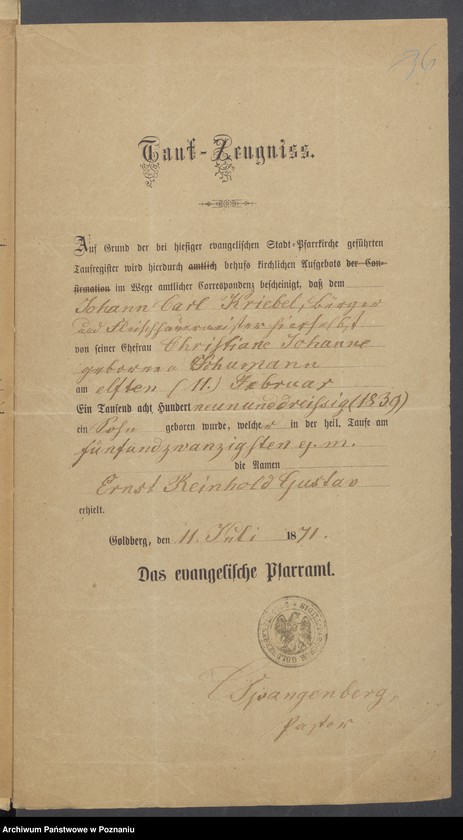 36
Tauf-Zeugniss.
Auf Grund der bei hiesiger evangelischen Stadt-Pfarrkirche geführten
Taufregister wird hierdurch amtlich behufs kirchlichen Aufgebots der Con-
firmation im Wege amtlicher Correspondenz bescheinigt, daß dem
Johann Carl Kriebel, Bürger
und Fleischhauermeister hierselbst
von seiner Ehefrau Christiane Johanne
geborene Schumann
am elften (11.) Februar
Ein Tausend acht Hundert neununddreissig (1839)
ein Sohn geboren wurde, welcher in der heil. Taufe am
fünfundzwanzigsten ej. m.
die Namen
Ernst Reinhold Gustav
erhielt.
Goldberg, den 11. Juli 1871.
Das evangelische Pfarramt.
Spangenberg,
Pastor
Archiwum Państwowe w Poznaniu